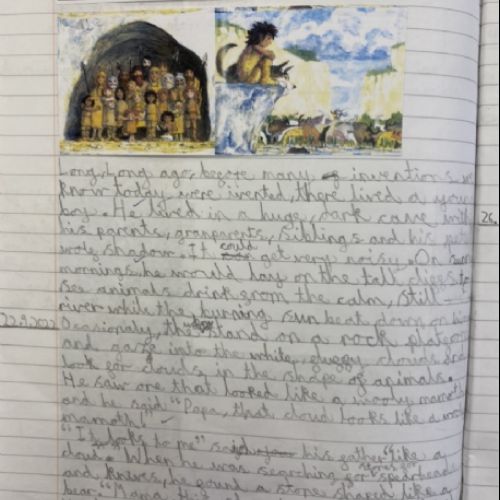 Long, Long ago, before many inventions we
know today, were ivented, there lived a young
boy. He lived in a huge, dark cave with
his parents, granparents, siblings and his pet
wolf shadow. It could get very noisy. On
mornings, he would lay on the tall cliffs to
see animals drink from the calm, still
river while the burning sun beat down on
22.9.2022
26.
Ocasionaly, the stand on a rock
and gaze into the white, fluffy clouds and
look for clouds in the shape of animals.
He saw one that looked like a wooly
and he said "Papa, that cloud looks like a
mamoth!"
"It looks to me" said his father "like a
cloud". When he was searching for
and knives, he found a stone shaped like a
bear. "Mama